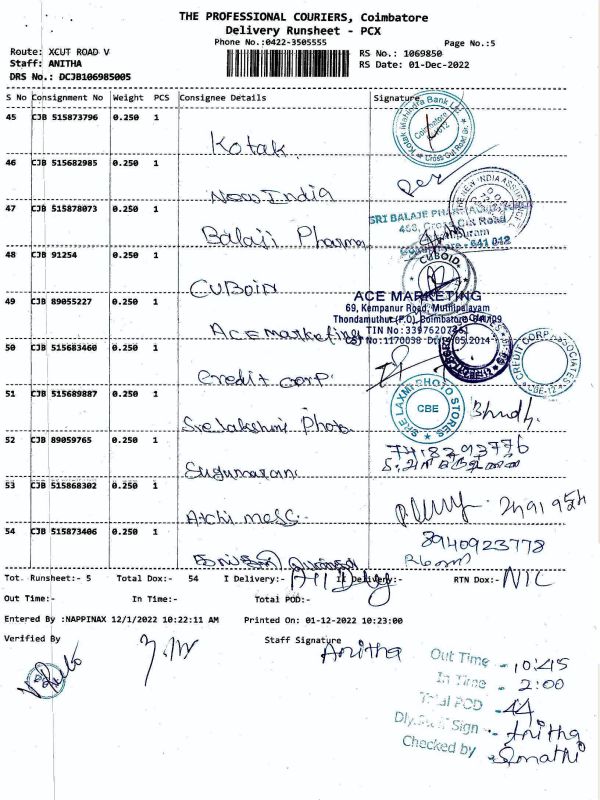 THE PROFESSIONAL COURIERS, Coimbatore
Delivery Runsheet - PCX
Phone No.:0422-3505555
Page No.:5
Route: XCUT ROAD V
RS No.: 1069850
Staff: ANITHA
RS Date: 01-Dec-2022
DRS No.: DCJB106985005
S No Consignment No Weight PCS Consignee Details Signature
45 CJB 515873796 0.250 1
Kotak
46 CJB 515682985 0.250 1
New India
47 CJB 515878073 0.250 1
SRI BALAJE
Balaji Pharma
48 CJB 91254 0.250 1
CUBOID
CUBOIN
49 CJB 89055227 0.250 1
ACE MARKETING
69, Kempanur Road, Muthipalayam
ACE marketing
50 CJB 515683460 0.250 1
CREDIT CORP ASSOCIATES
Credit Corp
51 CJB 515689887 0.250 1
SRE LAXMI PHOTO STORES
CBE
Sre lakshmi Photo
52 CJB 89059765 0.250 1
Sugumaran
53 CJB 515868302 0.250 1
Atchi mess
54 CJB 515873406 0.250 1
8940923778
Tot. Runsheet:- 5 Total Dox:- 54 I Delivery:- All Dly II Delivery:- RTN Dox:- NIL
Out Time:- In Time:- Total POD:-
Entered By :NAPPINAX 12/1/2022 10:22:11 AM Printed On: 01-12-2022 10:23:00
Verified By Staff Signature
Anitha
Out Time - 10:45
In Time - 2:00
Total POD - 44
Dly.Staff Sign - Anitha
Checked by